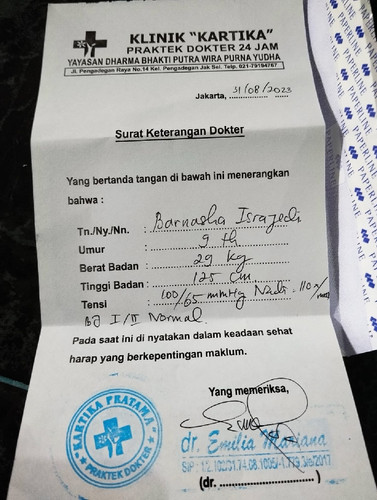 KLINIK "KARTIKA"
PRAKTEK DOKTER 24 JAM
YAYASAN DHARMA BHAKTI PUTRA WIRA PURNA YUDHA
Jl. Pengadegan Raya No.14 Kel. Pengadegan Jak Sel. Telp. 021-79184767
Jakarta, 31/08/2023
Surat Keterangan Dokter
Yang bertanda tangan di bawah ini menerangkan
bahwa :
Tn./Ny./Nn. : Barnasha Israjedi
Umur : 9 th
Berat Badan : 29 kg
Tinggi Badan : 125 cm
Tensi : 100/65 mmHg Nadi. 110x/
BJ I/II Normal
Pada saat ini di nyatakan dalam keadaan sehat
harap yang berkepentingan maklum.
Yang memeriksa,
KARTIKA PRATAMA
PRAKTEK DOKTER
dr. Emilia
SIP :
(dr. )
PAPERLINE